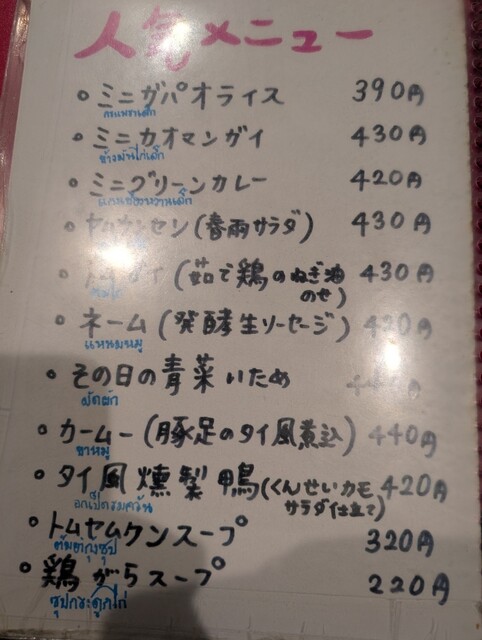 人気メニュー
○ ミニガパオライス 390円
กะเพราเด็ก
○ ミニカオマンガイ 430円
ข้าวมันไก่เด็ก
○ ミニグリーンカレー 420円
แกงเขียวหวานเด็ก
○ ヤムウンセン(春雨サラダ) 430円
(茹で鶏のねぎ油のせ) 430円
○ ネーム(発酵生ソーセージ) 430円
แหนมหมู
○ その日の青菜いため
ผัดผัก
○ カームー(豚足のタイ風煮込) 440円
ขาหมู
○ タイ風燻製鴨(くんせいカモ、サラダ仕立て) 420円
อกเป็ดรมควัน
○ トムヤムクンスープ 320円
ต้มยำกุ้งซุป
○ 鶏がらスープ 220円
ซุปกระดูกไก่